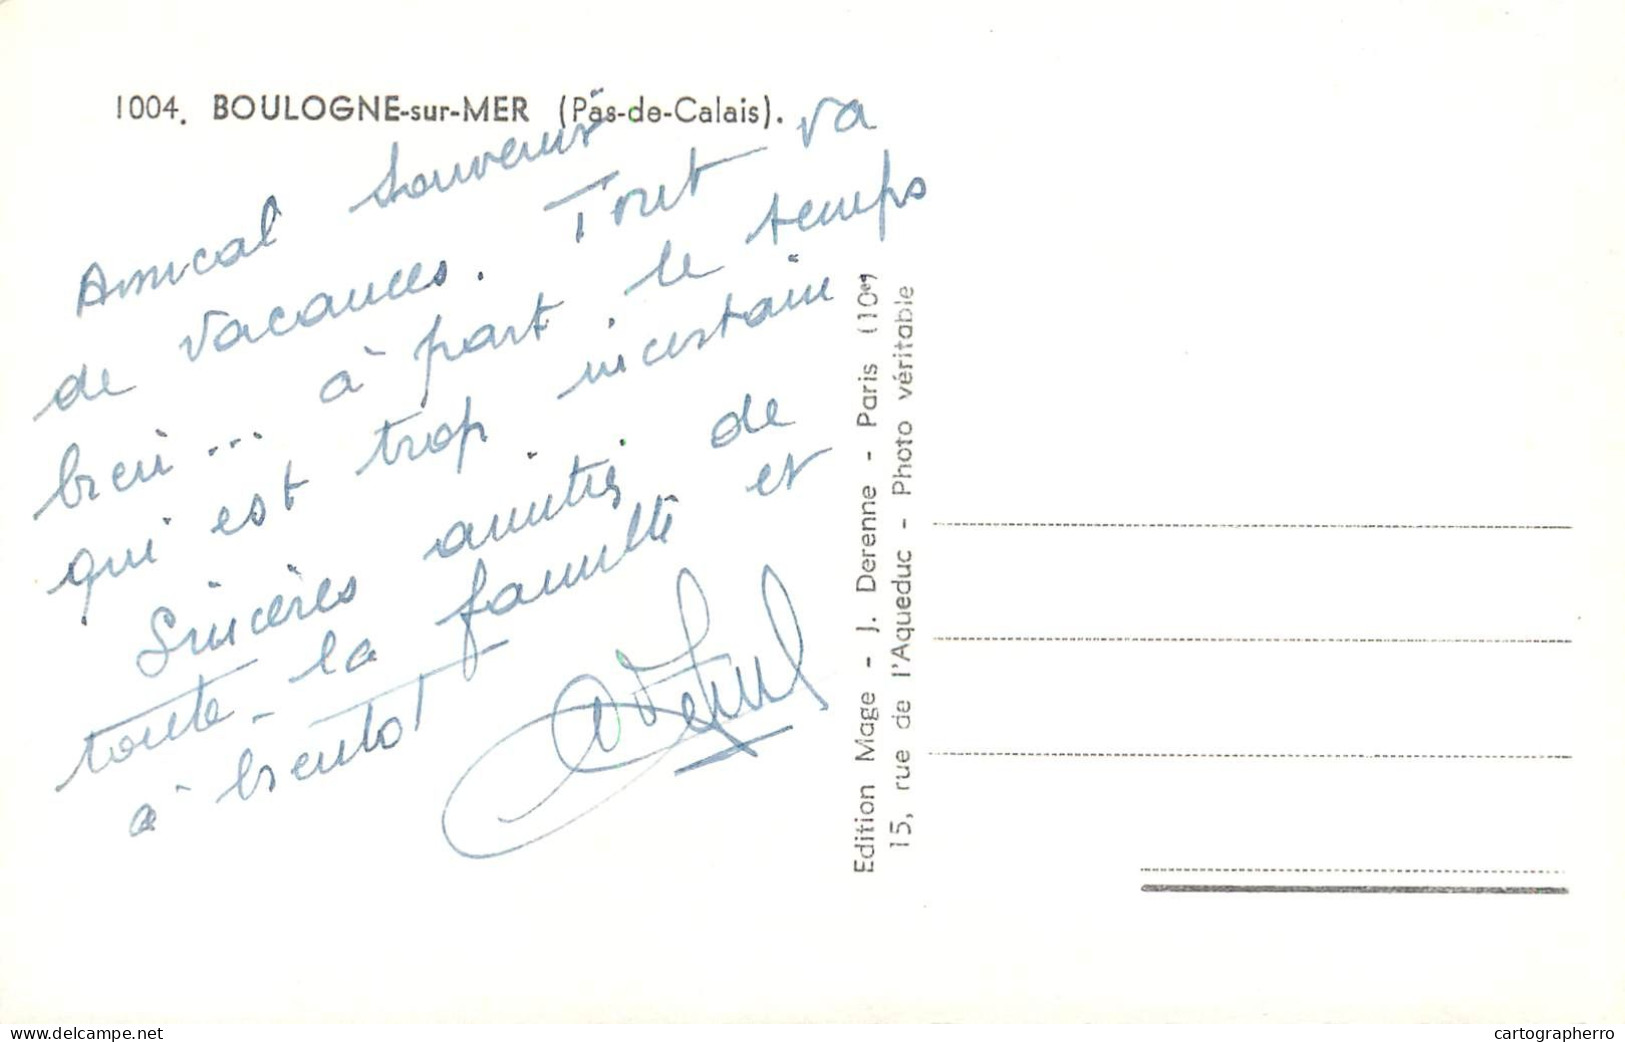 1004. BOULOGNE-sur-MER (Pas-de-Calais).
Amical souvenir
de vacances. Tout va
bien... à part le temps
qui est trop incertain
Sincères amitiés de
toute la famille et
à bientôt
Edition Mage - J. Derenne - Paris (10e)
15, rue de l'Aqueduc - Photo véritable
www.delcampe.net
cartographerro